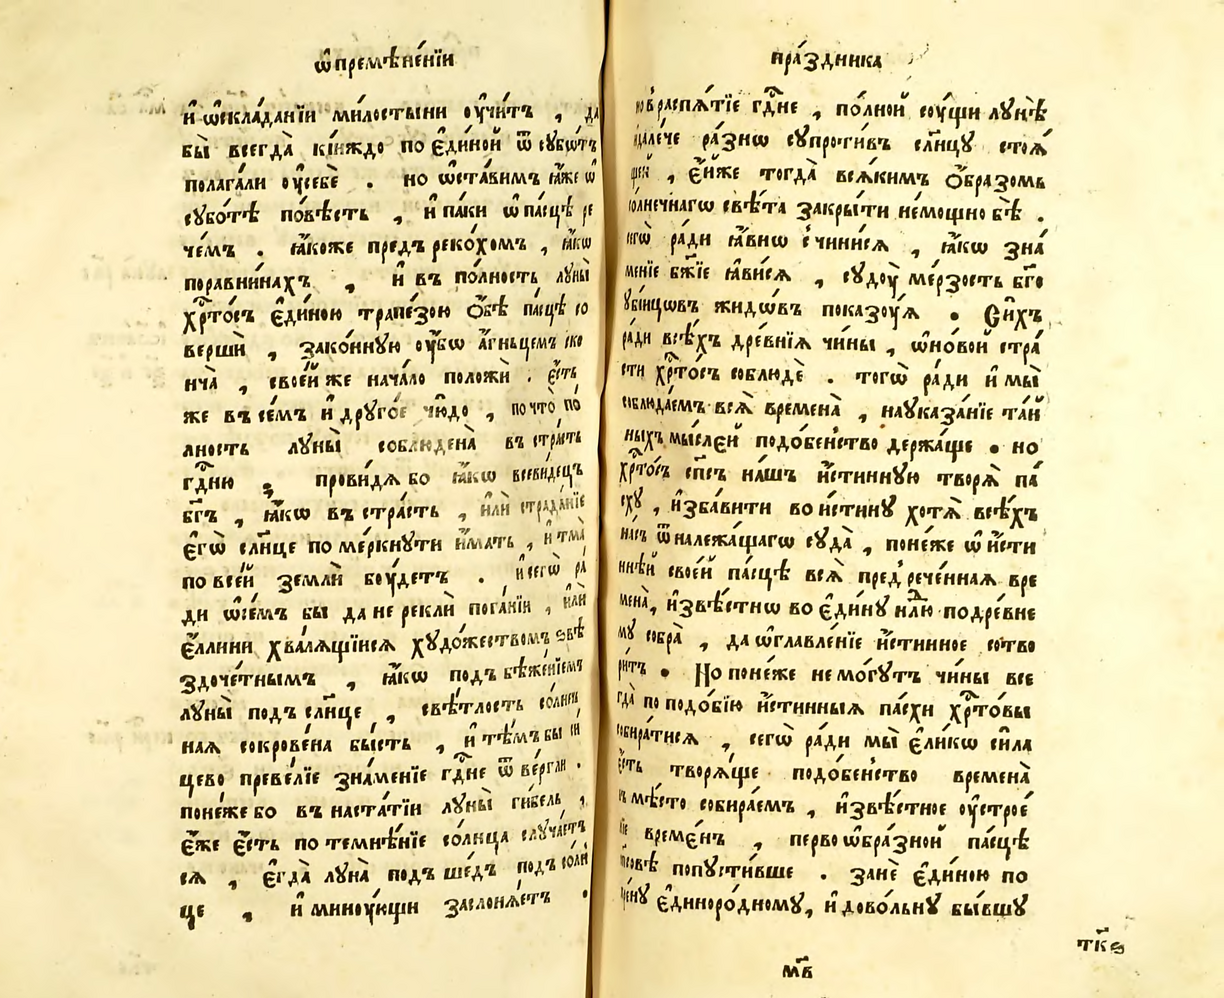 ѿ премѣне́нїи
и҆ ѡ҆складанїи милостыни ᲂу҆чи́тъ , да
бы̀ всегда̀ кі́иждо по є҆ди́нои ѿ сꙋбѡ́тъ
полагали ᲂу҆себѐ . но ѡ҆ста́вимъ ꙗ҆́же ѡ҆
сꙋбо́тѣ по́вѣсть , и҆ па́ки ѡ҆ па́сцѣ ре
че́мъ . ꙗ҆́коже предъ реко́хомъ , ꙗ҆́кѡ
поравни́нахъ , и҆ въ по́лность лꙋны̀
хрⷭ҇то́съ є҆ди́ною трапе́зою ѻ҆́бѣ па́сцѣ со
вершѝ , зако́ннꙋю ᲂу҆́бѡ а҆́гньцемъ ско
нча̀ , свое́и же нача́ло положѝ . є҆́сть
же въ се́мъ и҆ дрꙋго́е чю́до , почто̀ по́
лность лꙋны̀ соблюдена̀ въ стра́сть
гдⷭ҇ню ; прови́дѧ бо ꙗ҆́кѡ всеви́децъ
бг҃ъ , ꙗ҆́кѡ въ стра́сть , и҆лѝ страда́нїе
є҆гѡ̀ слн҃це поме́ркнꙋти и҆́мать , и҆ тма̀
по все́и землѝ бꙋ́детъ . и҆ сегѡ̀ ра́
ди ѡ҆се́мъ бы да не реклѝ пога́нїи , и҆лѝ
є҆́ллини хвалѧ́щїисѧ хꙋдо́жествомъ ѕвѣ
здоче́тнымъ , ꙗ҆́кѡ подъ бѣже́нїемъ
лꙋны̀ подъ слн҃це , свѣ́тлость со́лнеч
наѧ сокрове́на бы́сть , и҆ тѣ́мъ бы си
цево преве́лїе зна́менїе гдⷭ҇не ѿ ве́ргли .
поне́же бо въ наста́тїи лꙋны̀ ги́бель ,
є҆́же є҆́сть по темнѣ́нїе со́лнца слꙋча́етъ
сѧ , є҆гда̀ лꙋна̀ подъ ше́дъ подъ со́лн
це , и҆ минꙋ́ющи заслонѧ́етъ .
пра́здника
распѧ́тїе гдⷭ҇не , по́лной сꙋ́щи лꙋ́нѣ
ра́знѡ сꙋпроти́въ слн҃цꙋ стоѧ́
, є҆́йже тогда̀ всѧ́кимъ ѻ҆́бразомъ
со́лнечнагѡ свѣ́та закры́ти не́мощно бѣ̀ .
сегѡ̀ ра́ди ꙗ҆́внѡ ᲂу҆чини́сѧ , ꙗ҆́кѡ зна́
менїе бж҃їе ꙗ҆ви́сѧ , сꙋдᲂу҆̀ ме́рзость бг҃о
ᲂу҆бі́ицѡвъ жидѡ́въ показꙋ́ѧ . Си́хъ
ра́ди всѣ́хъ дре́внїѧ чи́ны , ѡ҆но́вой стра́
сти хрⷭ҇то́съ соблюдѐ . тогѡ̀ ра́ди и҆ мы̀
соблюда́емъ всѧ̀ времена̀ , наꙋказа́нїе та́й
ныхъ мы́слєй подо́бенство держа́ще . но
хрⷭ҇то́съ сп҃съ на́шъ и҆́стиннꙋю творѧ̀ па́
схꙋ , и҆зба́вити вои́стинꙋ хотѧ̀ всѣ́хъ
на́съ ѿ належа́щагѡ сꙋда̀ , поне́же ѡ҆ и҆́сти
ннѣй свое́й па́сцѣ всѧ̀ пред̾рече́ннаѧ вре
мена̀, и҆звѣ́стнѡ во є҆ди́нꙋ нлⷣю подре́вне
мꙋ собра̀ , да ѡ҆главле́нїе и҆́стинное сотво
ри́тъ . Но поне́же не мо́гꙋтъ чи́ны все
гда̀ по подо́бїю и҆́стинныѧ па́схи хрⷭ҇то́вы
собира́тисѧ , сегѡ̀ ра́ди мы̀ є҆ли́кѡ си́ла
є҆́сть творѧ́ще подо́бенство времена̀
въ мѣ́сто собира́емъ , и҆звѣ́стное ᲂу҆строе́
нїе време́нъ , перво ѡ҆бра́зной па́сцѣ
попꙋсти́вше . занѐ є҆ди́ною по
є҆диноро́дномꙋ, и҆ дово́льнꙋ бы́вшꙋ
мв҃
ткѕ҃